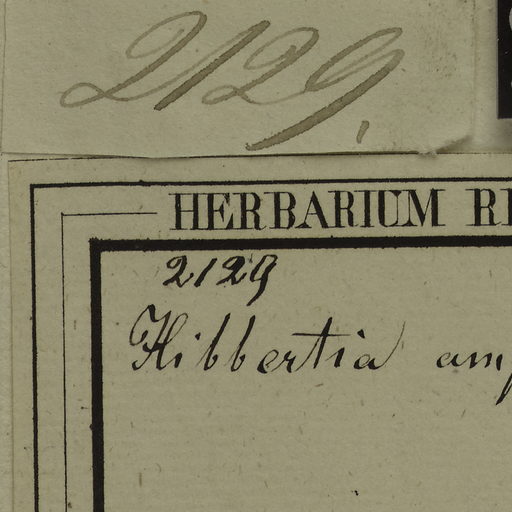 2129,
HERBARIUM
2129
Hibbertia